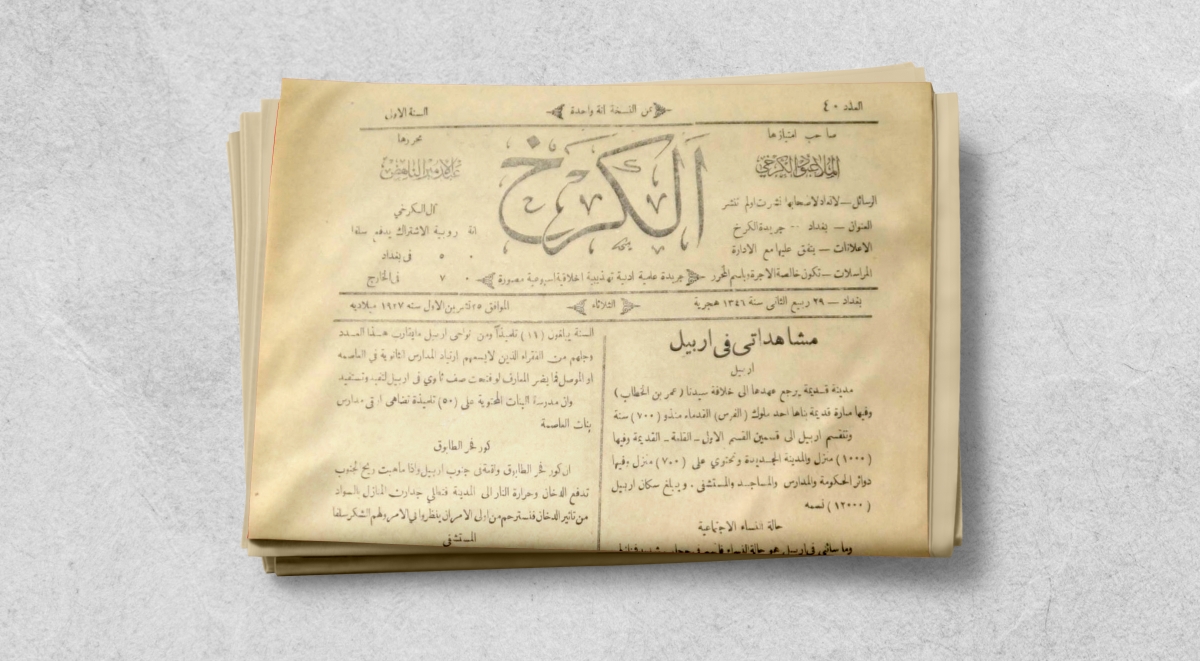 العدد ٤٠
ثمن النسخة انة واحدة
السنة الاول
صاحب امتيازها
الملا عبود الكرخي
الرسائل — لاتعاد لاصحابها نشرت اولم تنشر
العنوان — بغداد -- جريدة الكرخ
الاعلانات — يتفق عليها مع الادارة
المراسلات — تكون خالصة الاجرة وباسم المحرر
الكرخ
جريدة علمية ادبية تهذيبية اخلاقية اسبوعية مصورة
محررها
عبدالامير الناهض
آل الكرخي
انة روبية الاشتراك يدفع سلفا
٠ ٥ في بغداد
٠ ٧ في الخارج
بغداد — ٢٩ ربيع الثانى سنة ١٣٤٦ هجرية
الثلاثاء
الموافق ٢٥ تشرين الاول سنه ١٩٢٧ ميلاديه
مشاهداتى فى اربيل
اربيل
مدينة قديمة يرجع عهدها الى خلافة سيدنا (عمر بن الخطاب)
وفيها منارة قديمة بناها احد ملوك (الفرس) القدماء منذو (٧٠٠) سنة
وتنقسم اربيل الى قسمين القسم الاول ــ القلعة ــ القديمة وفيها
(١٠٠٠) منزل والمدينة الجديدة وتحتوي على (٧٠٠) منزل وفيها
دوائر الحكومة والمدارس والمساجد والمستشفى . ويبلغ سكان اربيل
(١٢٠٠٠) نسمه
حالة النساء الاجتماعية
وما سائنى فى اربيل هو حالة النساء
السنة يبلغون (١١) تلميذاً ومن نواحى اربيل مايقارب هذا العدد
وجلهم من الفقراء الذين لايسعهم ارتياد المدارس الثانوية في العاصمه
او الموصل فما يضر المعارف لو فتحت صف ثانوي فى اربيل لتفيد وتستفيد
وان مدرسة البنات المحتوية على (٥٠) تلميذة تضاهى ارقى مدارس
بنات العاصمة
كور فخر الطابوق
ان كور فخر الطابوق واقعة فى جنوب اربيل واذا ماهبت ريح الجنوب
تدفع الدخان وحرارة النار الى المدينة فتلاقي جدارت المنازل بالسواد
من تاثير الدخان فنسترحم من اولى الامر ان ينظروا في الامر ولهم الشكر سلفا
المستشفى